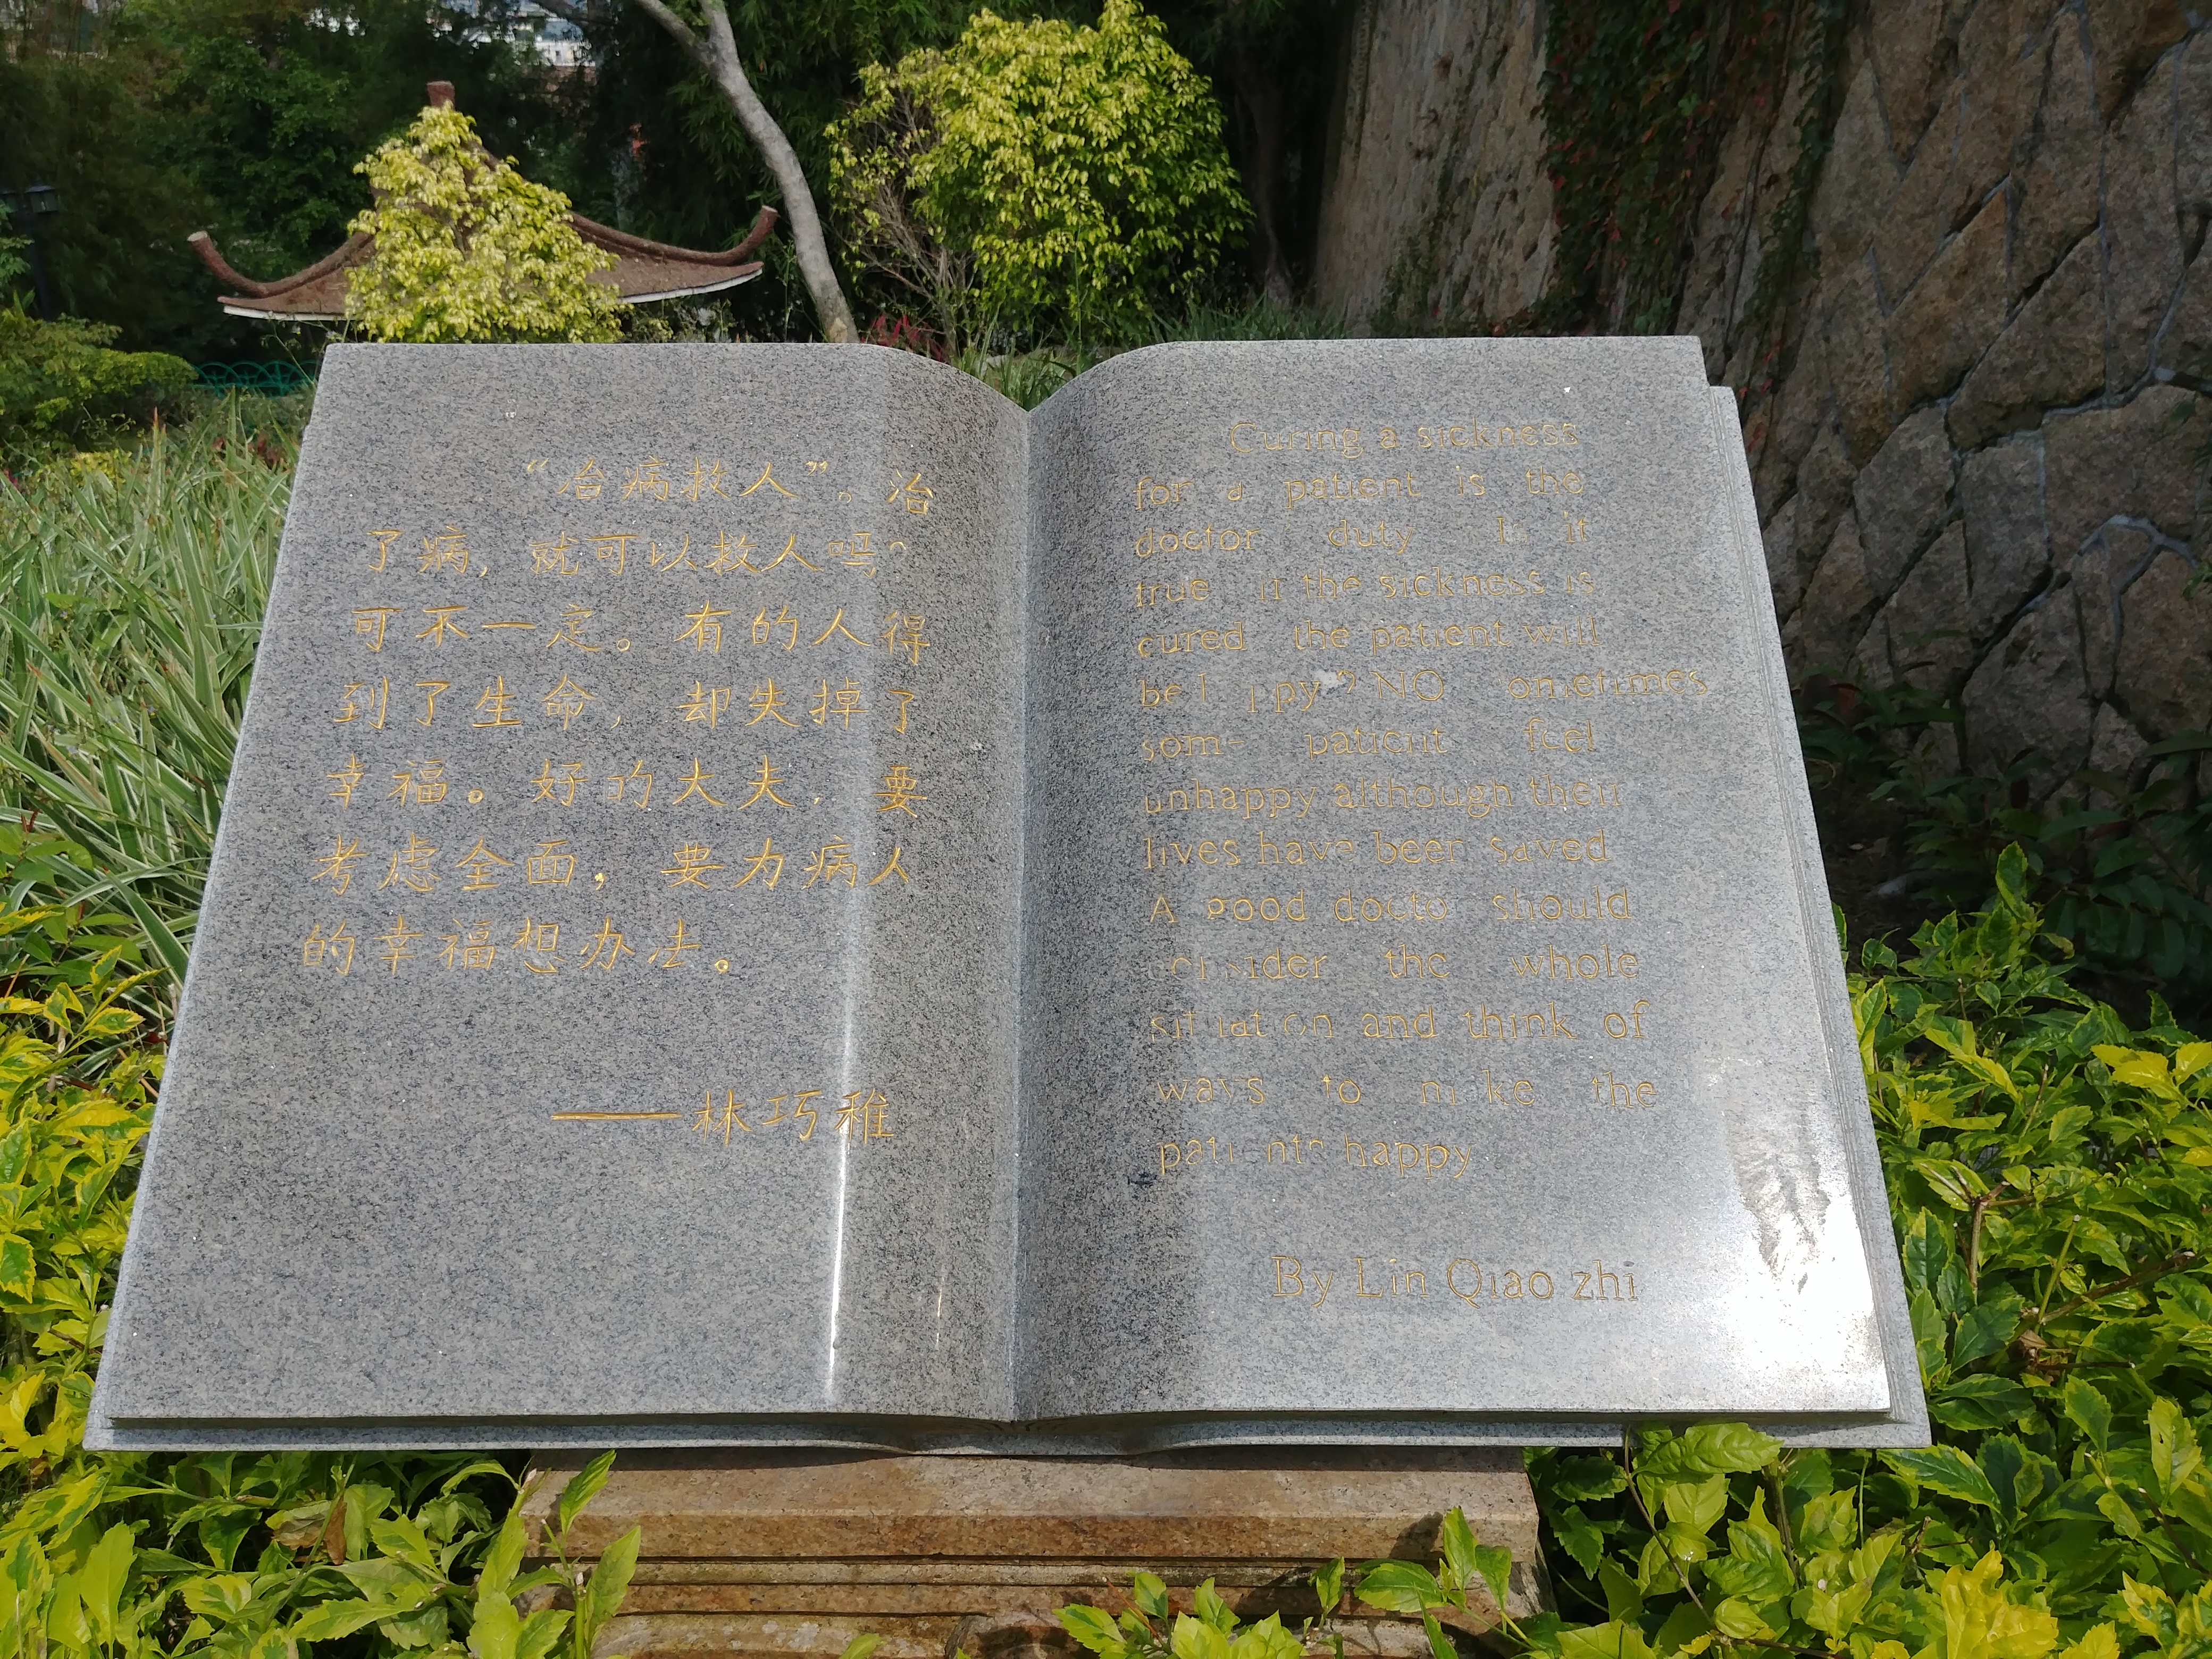 “治病救人”。治
了病，就可以救人吗？
可不一定。有的人得
到了生命，却失掉了
幸福。好的大夫，要
考虑全面，要为病人
的幸福想办法。
——林巧稚
Curing a sickness
for a patient is the
doctor duty it
true if the sickness is
cured the patient will
be NO
patient feel
unhappy although their
lives have been saved
A good doctor should
consider the whole
situation and think of
ways to make the
patients happy
By Lin Qiao zhi